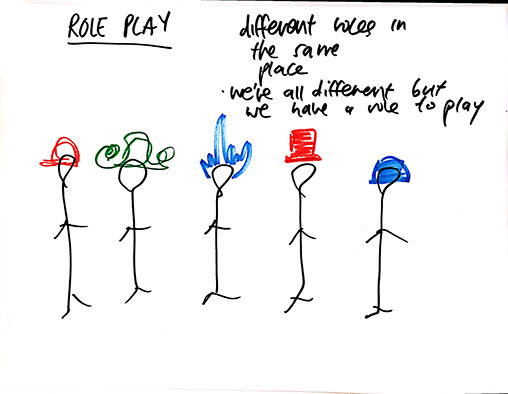 ROLE PLAY
different roles in
the same
place
· we're all different but
we have a role to play